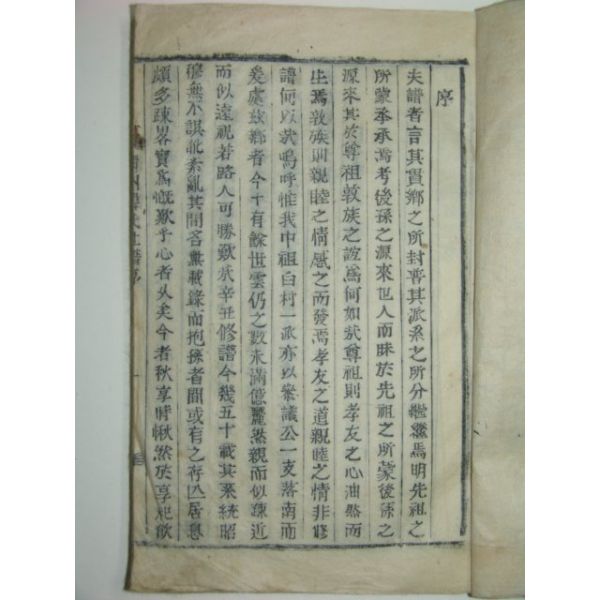 序
夫譜者言其貫鄉之所封啓其派系之所分繼繼焉明先祖之
所蒙承承焉考後孫之源來也人南昧於先祖之所蒙後孫之
源來其於尊祖敦族之誼爲何如哉尊祖則孝友之心油然而
生焉敦族則親睦之情感之而發焉孝友之道親睦之情非修
譜何以哉嗚呼惟我中祖白村一派亦以叅議公一支落南而
爰處玆鄉者今十有餘世雲仍之數未滿億麗然親而似疎近
而似遠視若路人可勝歎哉辛丑修譜今幾五十載其系統昭
穆無不誤批紊亂其間各無載錄而抱孫者間或有之存亡居息
頗多疎畧實爲慨歎乎心者久矣今者秋享時愀然於享祀飮